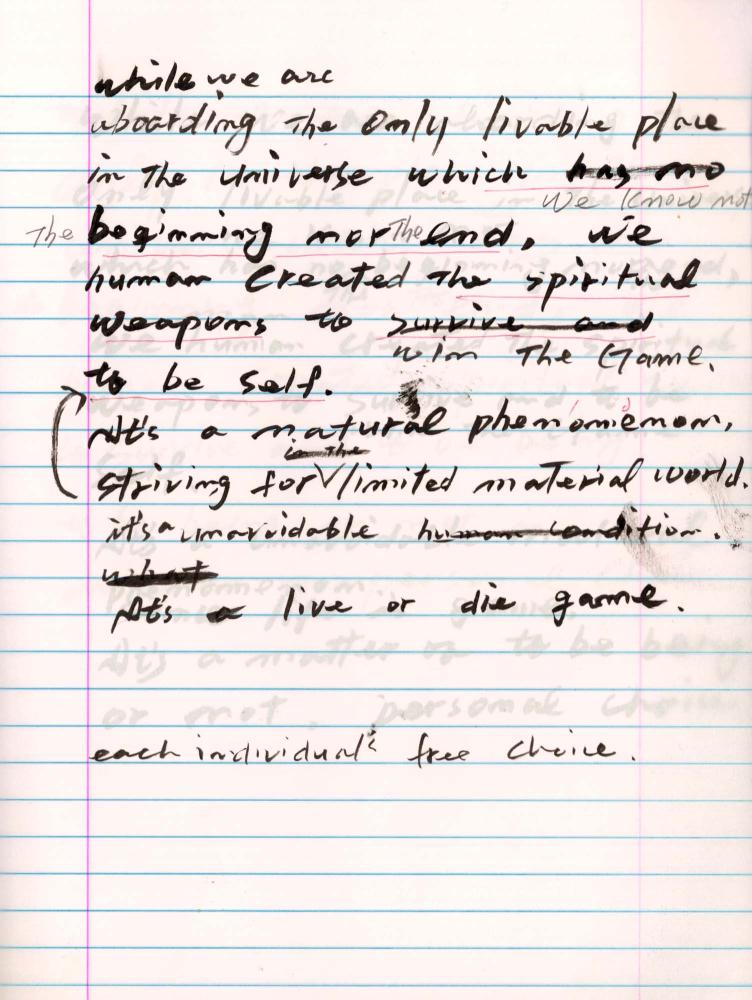 while we are
aboarding the only livable place
in the universe which has no
we know not
The beginning nor The end, we
human created the spiritual
weapons to survive and
win The Game.
to be self.
It's a natural phenomenon,
in the
striving for limited material world.
it's a unavoidable human condition.
what
It's a live or die game.
each individual's free choice.